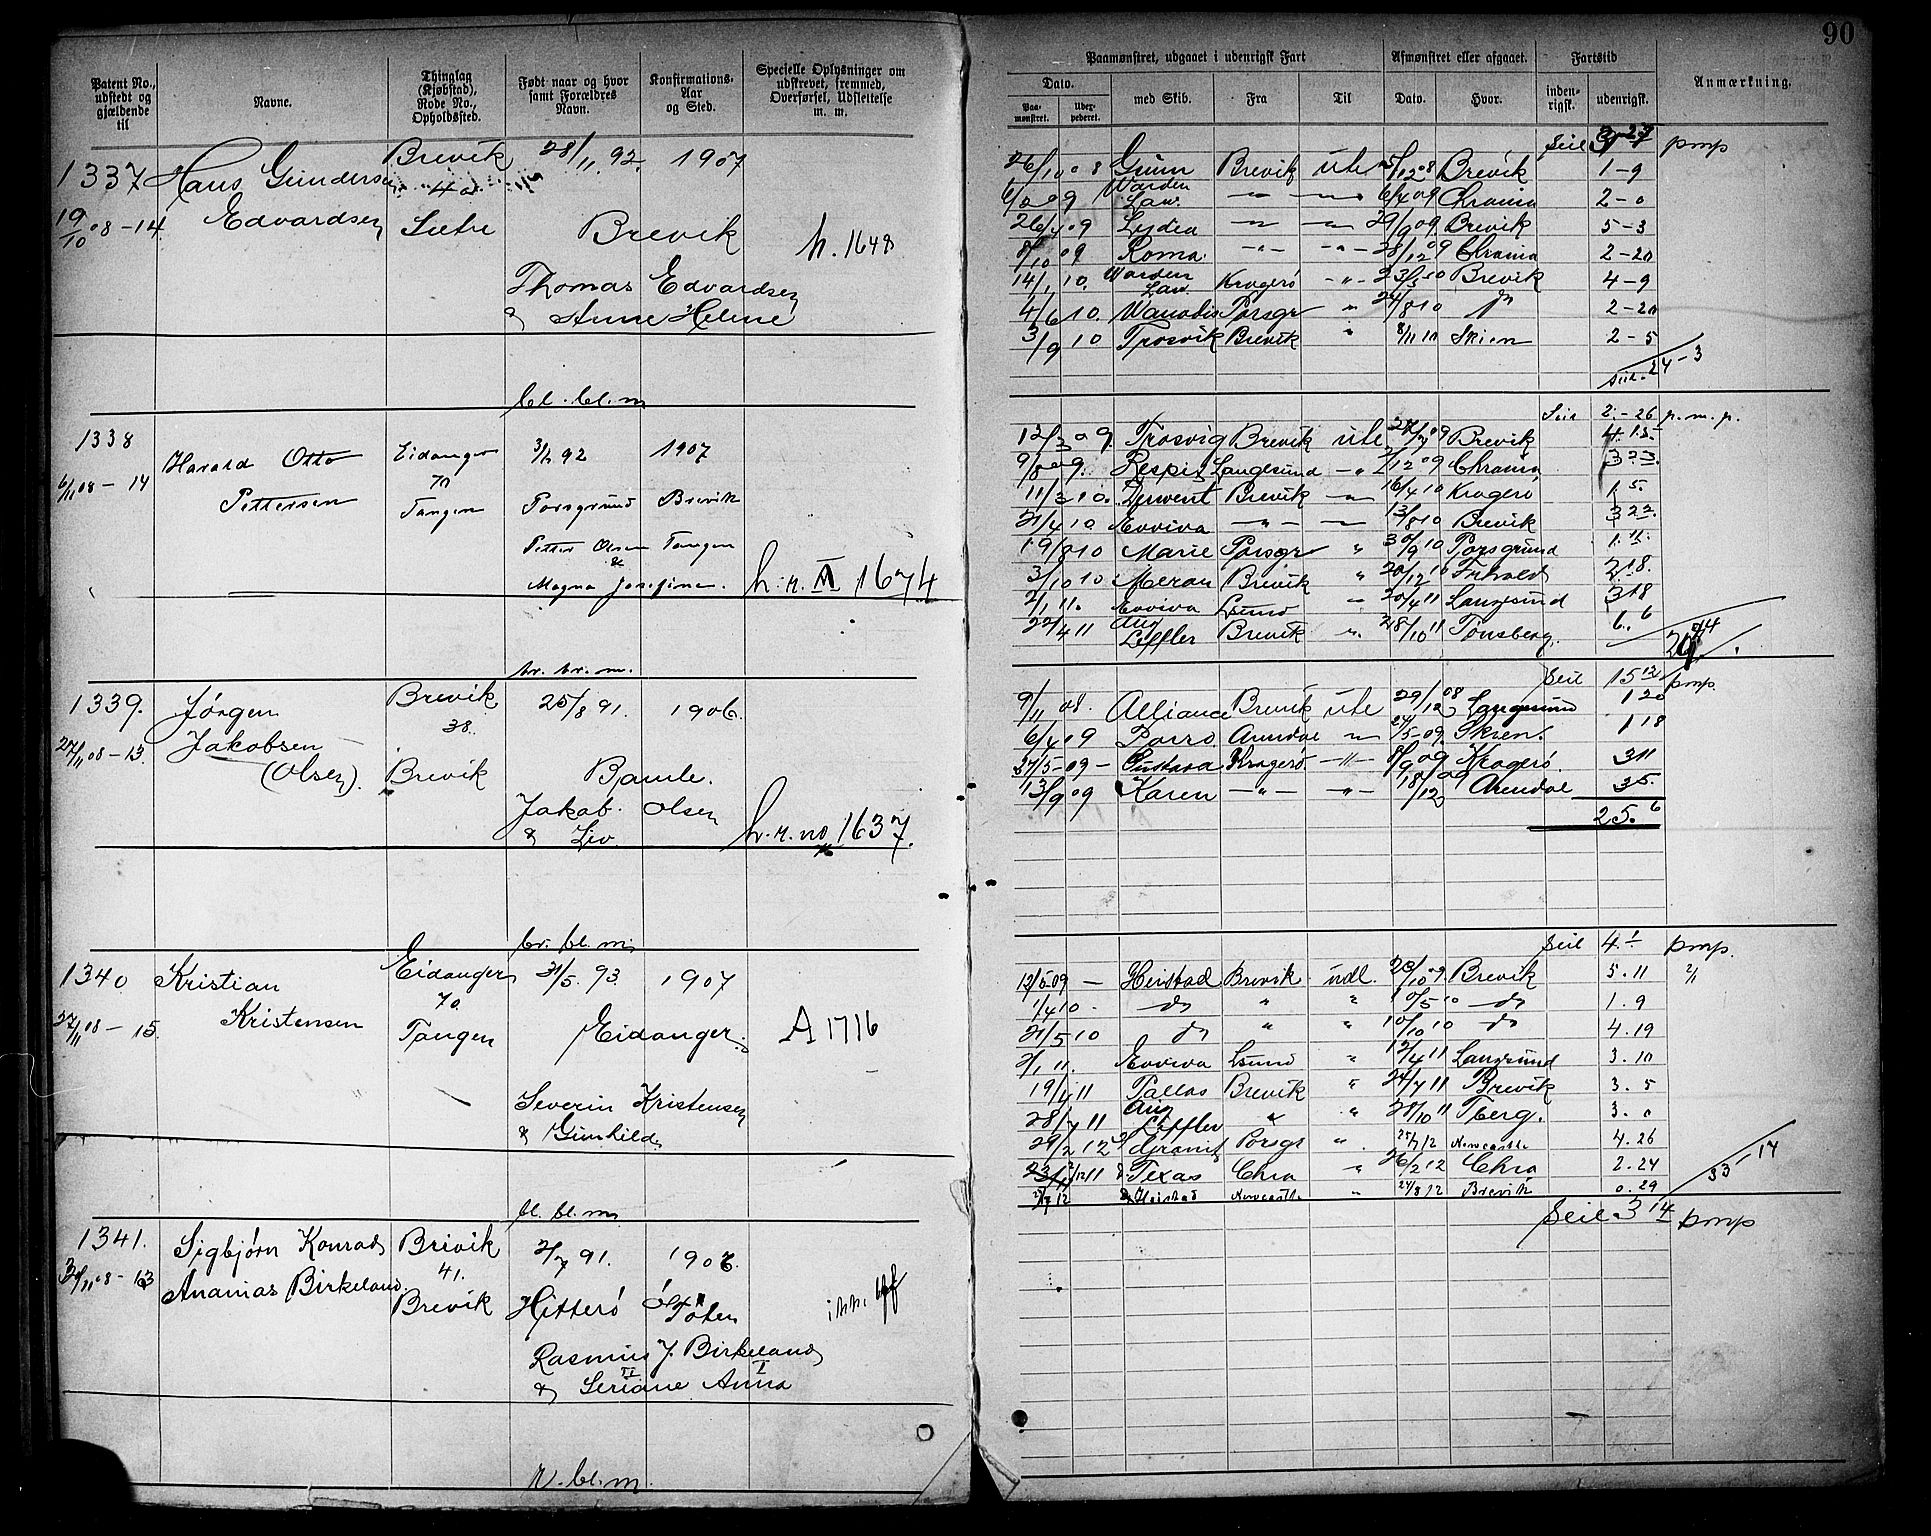 90
Patent No., udstedt og gjældende til
Navne.
Thinglag (Kjøbstad), Rode No., Opholdssted.
Født naar og hvor samt Forældres Navn.
Konfirmations-Aar og Sted.
Specielle Oplysninger om udskrevet, fremmed, Overførsel, Udslettelse m. m.
Paamønstret, udgaaet i udenrigsk Fart
Afmønstret eller afgaaet.
Fartstid
Anmærkning.
Dato.
Paa-mønstret.
med Skib.
Fra
Til
Dato.
Hvor.
inden-rigsk.
udenrigsk.
1337 Hans Gundersen Brevik 28/11 92. 1907
40
19/10 08-14 Edvardsen
Brevik
h. 1648
Thomas Edvardsen
& Anne Helene
bl. bl. m
Seil pmp
26/10 08 Gunn Brevik ute 5/12 08 Brevik 1-9
Warden Law. 6/4 09 Chrania 2-0
26/4 09 Lydia 29/9 09. Brevik 5-3
8/10 09 Roma 28/12 09 Chrania 2-20
14/1 10. Warden Law. Kragerø Brevik 4-9
4/6 10. Wanadis Porsgr 24/8 10 2-20
3/9 10 Trosvik Brevik 8/11 10 Skien 2-5
Seil. 24-3
1338 Harald Otto Eidanger 92 1907
70
6/11 08-14 Pettersen Tangen Porsgrund Brevik
Petter Olsen Tangen
&
Magna Josefine.
h. r. A 1674
br. br. m.
Seil 2.-26 p. m. p.
12/3 09. Trosvig Brevik ute Brevik 4.15.
9/8 09. Langesund 12 09 Chrania 3 23.
11/3 10. Derwent Brevik 16/4 10 Kragerø 1 5.
21/4 10 Evviva 13/8 10 Brevik 3 22.
19/8 10 Marie Porsgr 30/9 10 Porsgrund 1. 11.
3/10 10 Meran Brevik 20/12 10 218.
2/1 11. Evviva Lsund 20/4 11 Langesund 318
22/4 11 Aug Leffler Brevik 28/10 11 Tønsberg. 6. 6
1339. Jørgen Brevik 25/8 91. 1906.
38.
27/11 08-13. Jakobsen
(Olsen). Brevik Bamle.
Jakob Olsen
& Liv.
h. r. no 1637.
br. bl. m.
Seil 15 12 pmp.
9/11 08. Alliance Brevik ute 29/12 08 Langesund 1 20
6/4 09 Porro Arendal 24/5-09. Skien. 1 18
27/5-09 - Gustava Kragerø 8/9 09 Kragerø. 3 11
13/9 09 Karen 18/12 09 Arendal 3 5.
25. 6
1340 Kristian Eidanger 31/5. 93. 1907
70.
27/11 08-15. Kristensen Tangen Eidanger.
A 1716
Severin Kristensen
& Gunhild
bl. bl. m
Seil 4. 1 pmp.
12/5-09 - Heistad Brevik udl. 20/10 09. Brevik 5. 11
1/4 10 - do " " 10/5 10 do 1. 9
21/5 10 do " " 10/10 10 do 4. 19
2/1 11. Evviva Lsund " 12/4 11 Langesund 3. 10
19/4 11 Pallas Brevik " 24/7 11 Brevik 3. 5
28/7 11 Aug Leffler " " 28/10 11 Tberg. 3. 0
29/2 12 Porsgr " 25/7 12 Newcastle 4. 26
12/11 Texas Chra " 26/2 12 Chra 2. 24
Heistad Newcastle " 24/8 12 Brevik 0. 29
33-14
1341. Sigbjørn Konrad Brevik 2/7 91. 1906.
41.
30/11 08-13 Ananias Birkeland. Brevik Hitterø Toten
Rasmus J. Birkeland
II I
& Seriane Anna
bl. m.
Seil 3 14 pmp